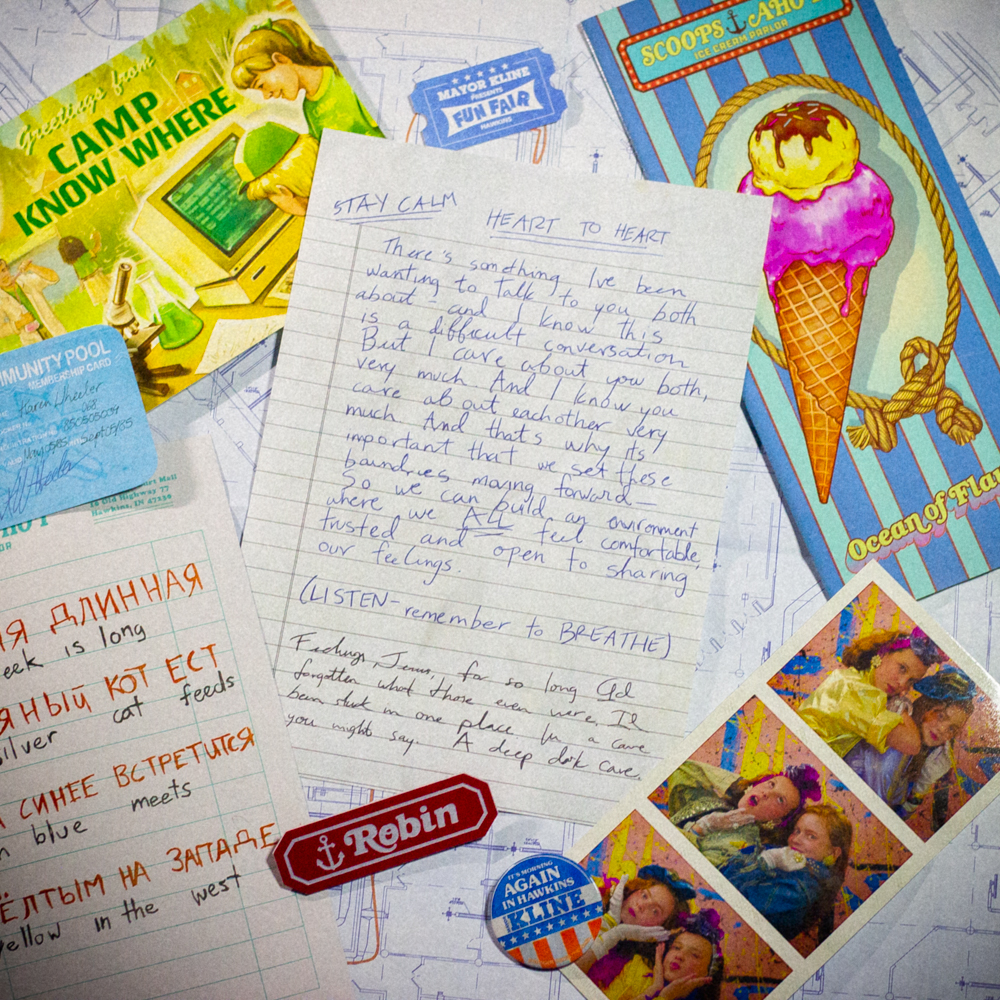 Greetings from
CAMP
KNOW WHERE
MAYOR KLINE
PRESENTS
FUN FAIR
HAWKINS
SCOOPS AHOY
ICE CREAM PARLOR
Ocean of Fla
MMUNITY POOL
MEMBERSHIP CARD
Karen Wheeler
Hawkins, IN
STAY CALM
HEART TO HEART
There's something I've been
wanting to talk to you both
about - and I know this
is a difficult conversation
But I care about you both,
very much And I know you
care about eachother very
much. And that's why its
important that we set these
boundries moving forward—
So we can build an environment
where we ALL feel comfortable,
trusted and open to sharing
our feelings.
(LISTEN - remember to BREATHE)
Feelings, Jesus, for so long I'd
forgotten what those even were. I'd
been stuck in one place. In a cave
you might say. A deep dark cave.
Я ДЛИННАЯ
eek is long
ЯНЫЙ КОТ ЕСТ
silver cat feeds
СИНЕЕ ВСТРЕТИТСЯ
blue meets
ЁЛТЫМ НА ЗАПАДЕ
yellow in the west
Robin
IT'S MORNING
AGAIN
IN HAWKINS
KLINE